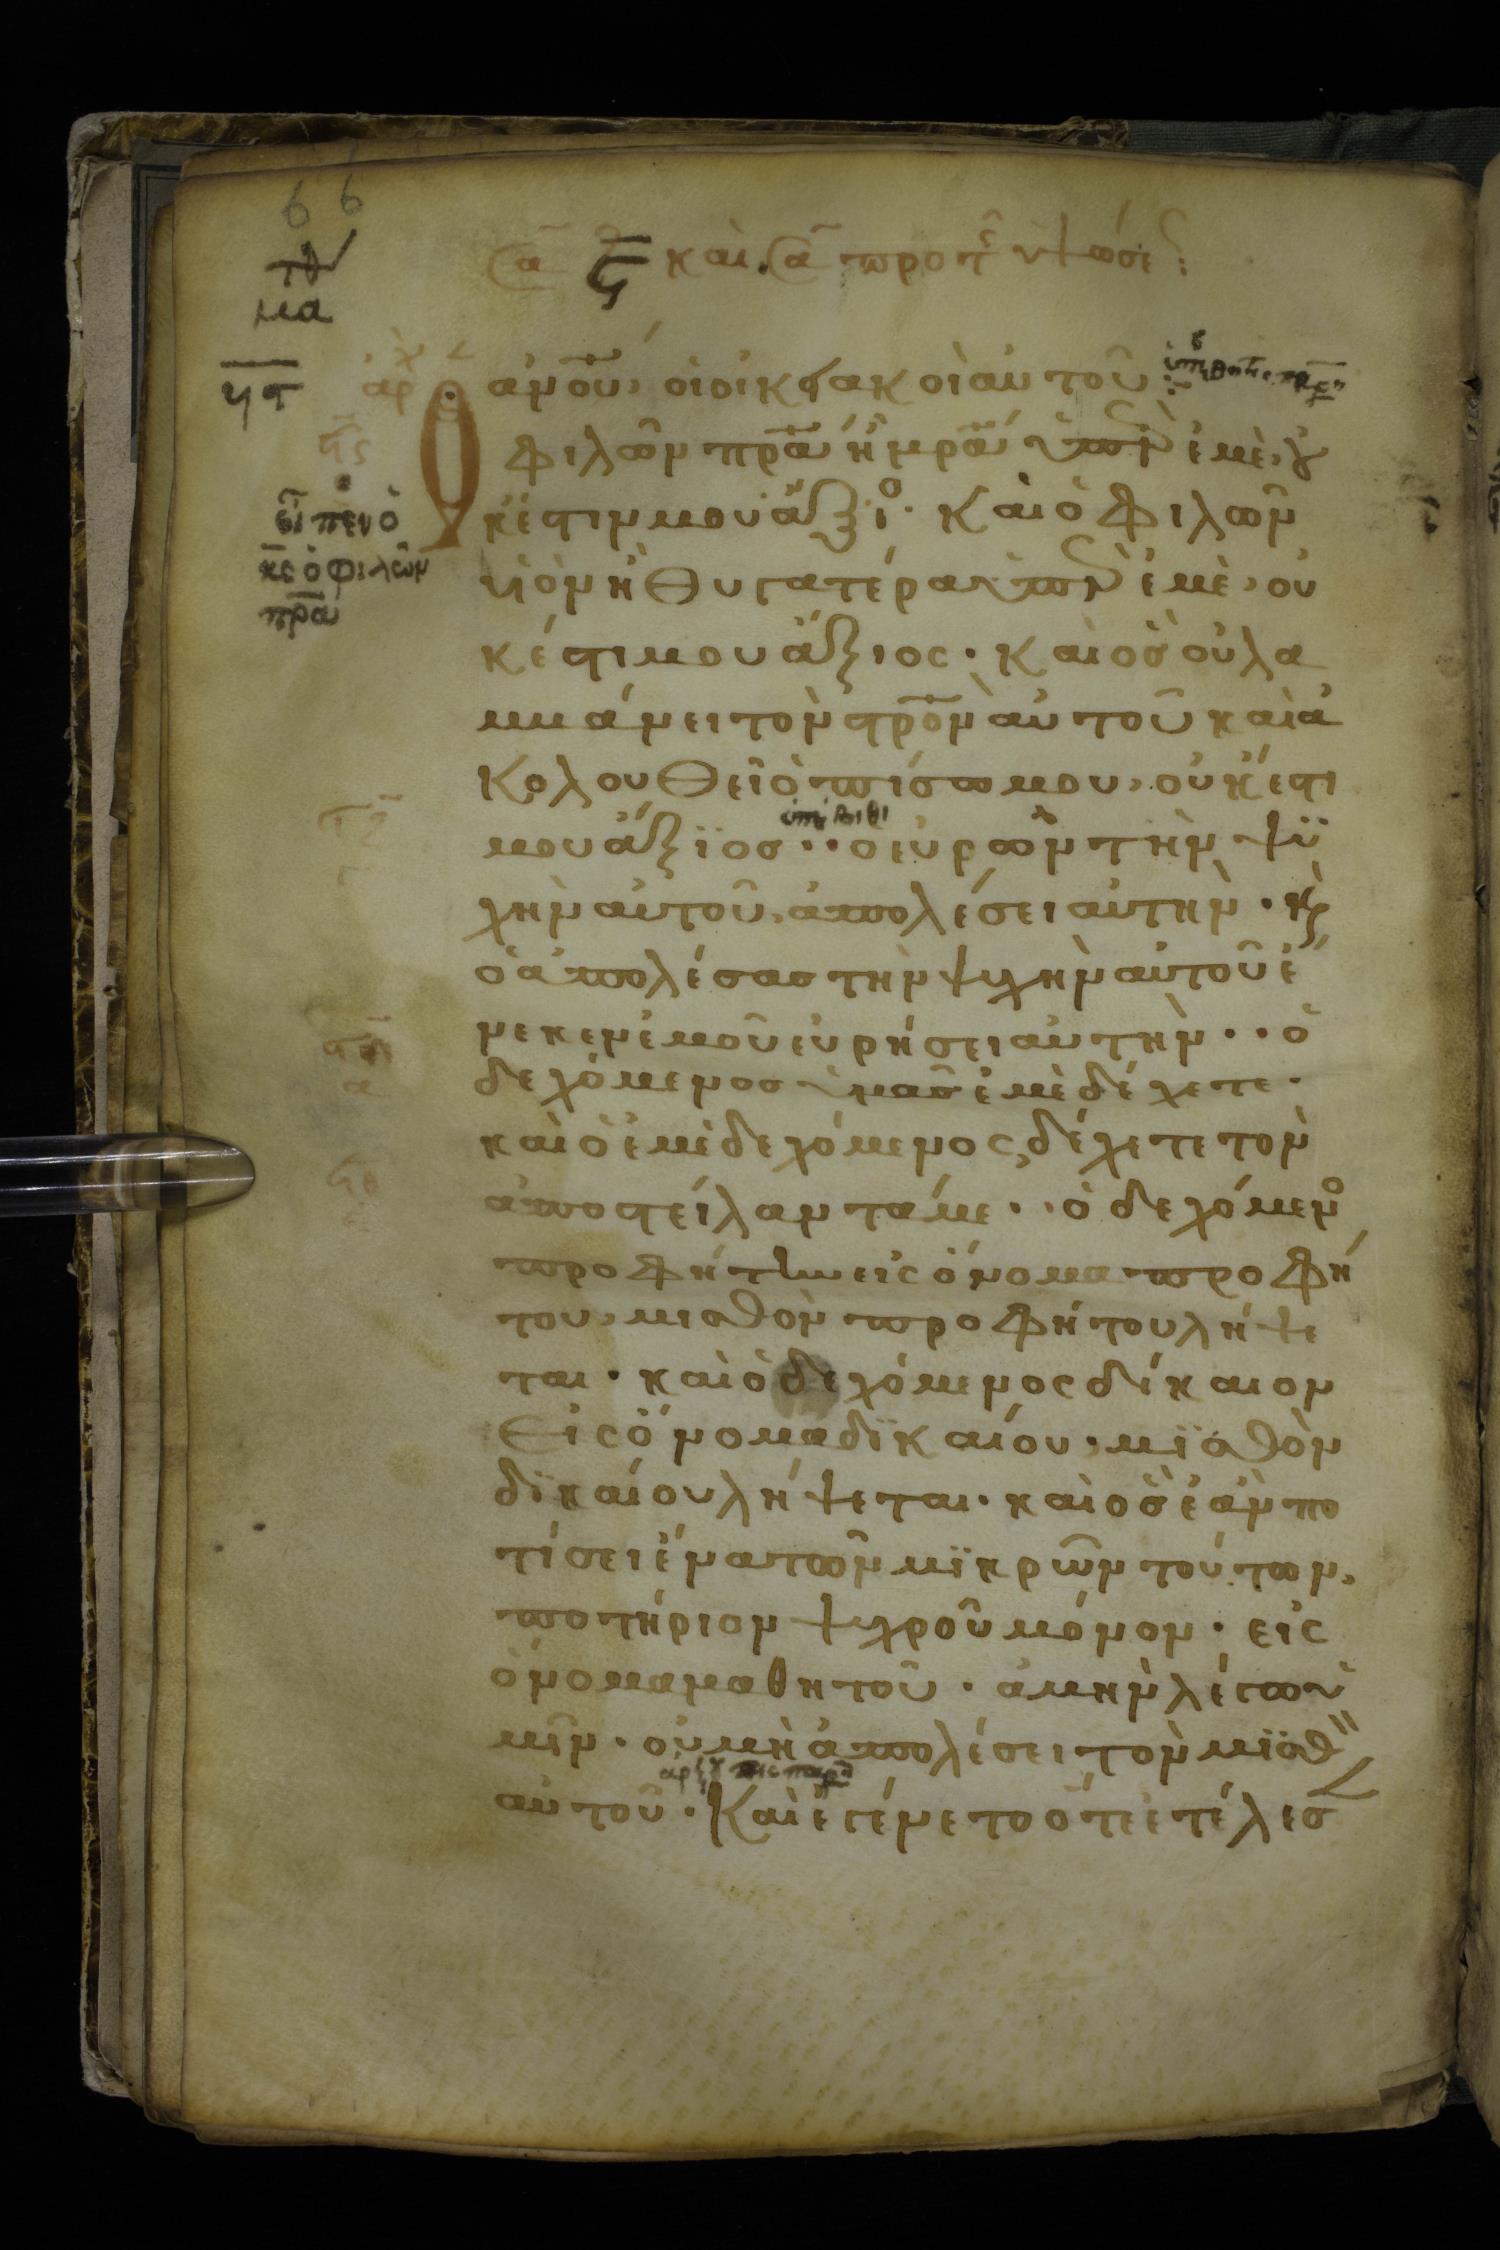 66
μα
καὶ
ἀνου, οἱ οἰκϊακοὶ αὐτοῦ
φιλῶν πρα ἢ μρα ὑπὲρ ἐμὲ, οὐ
κ ἔστιν μου ἄξιο· Και ὁ φιλῶν
υἱὸν ἢ θυγατέρα ὑπὲρ ἐμὲ, οὐ
κ έστι μου ἄξιος· Και ὃσ οὐ λα
μβάνει τὸν στρον αὐτοῦ και ἀ
κολουθεῖ ὀπίσω μου, οὐκ ἔστι
μου ἄξϊοσ·· ὁ εὑρὼν τὴν ψϋ
χὴν αὐτοῦ, ἀπολέσει αὐτὴν· κ
ὁ ἀπολέσασ τὴν ψυχὴν αὐτοῦ ἕ
νεκεν ἐμοῦ εὑρήσει αὐτὴν·· ὁ
δεχόμενοσ ὑμασ ἐμὲ δέχετε·
και ὁ ἐμὲ δεχόμενος, δέχετε τὸν
ἀποστείλαντά με·· ὁ δεχόμενο
προφήτην εἰς ὄνομα προφή
του, μισθὸν προφήτου λήψε
ται· και ὁ δεχόμενος δίκαιον
Εἰς ὄνομα δϊκαίου, μϊσθὸν
δϊκαίου λήψεται· και ὃσ ἐὰν πο
τίσει ἕνα τῶν μϊκρῶν τούτων,
ποτήριον ψυχροῦ μόνον· εἰς
ὄνομα μαθητοῦ· ἀμὴν λέγω ὑ
μῖν· οὐ μὴ ἀπολέσει τὸν μϊσθ
αὐτοῦ· Και ἐγένετο ὅτε ἐτέλεσ
εἶπεν ὁ
κς ὁ φιλῶν
πρα